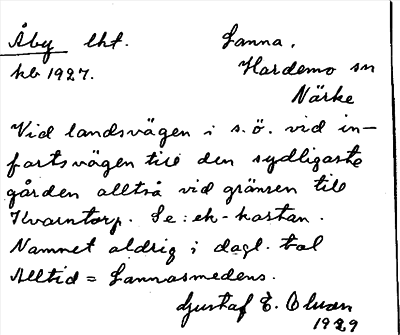 Åby lht. Lanna.
kb 1927. Hardemo sn
Närke
Vid landsvägen i s.ö. vid in-
fartsvägen till den sydligaste
gården alltså vid gränsen till
Kvarntorp. Se: ek-kartan.
Namnet aldrig i dagl. tal
Alltid = Lannasmedens.
Gustaf E. Olsson
1929